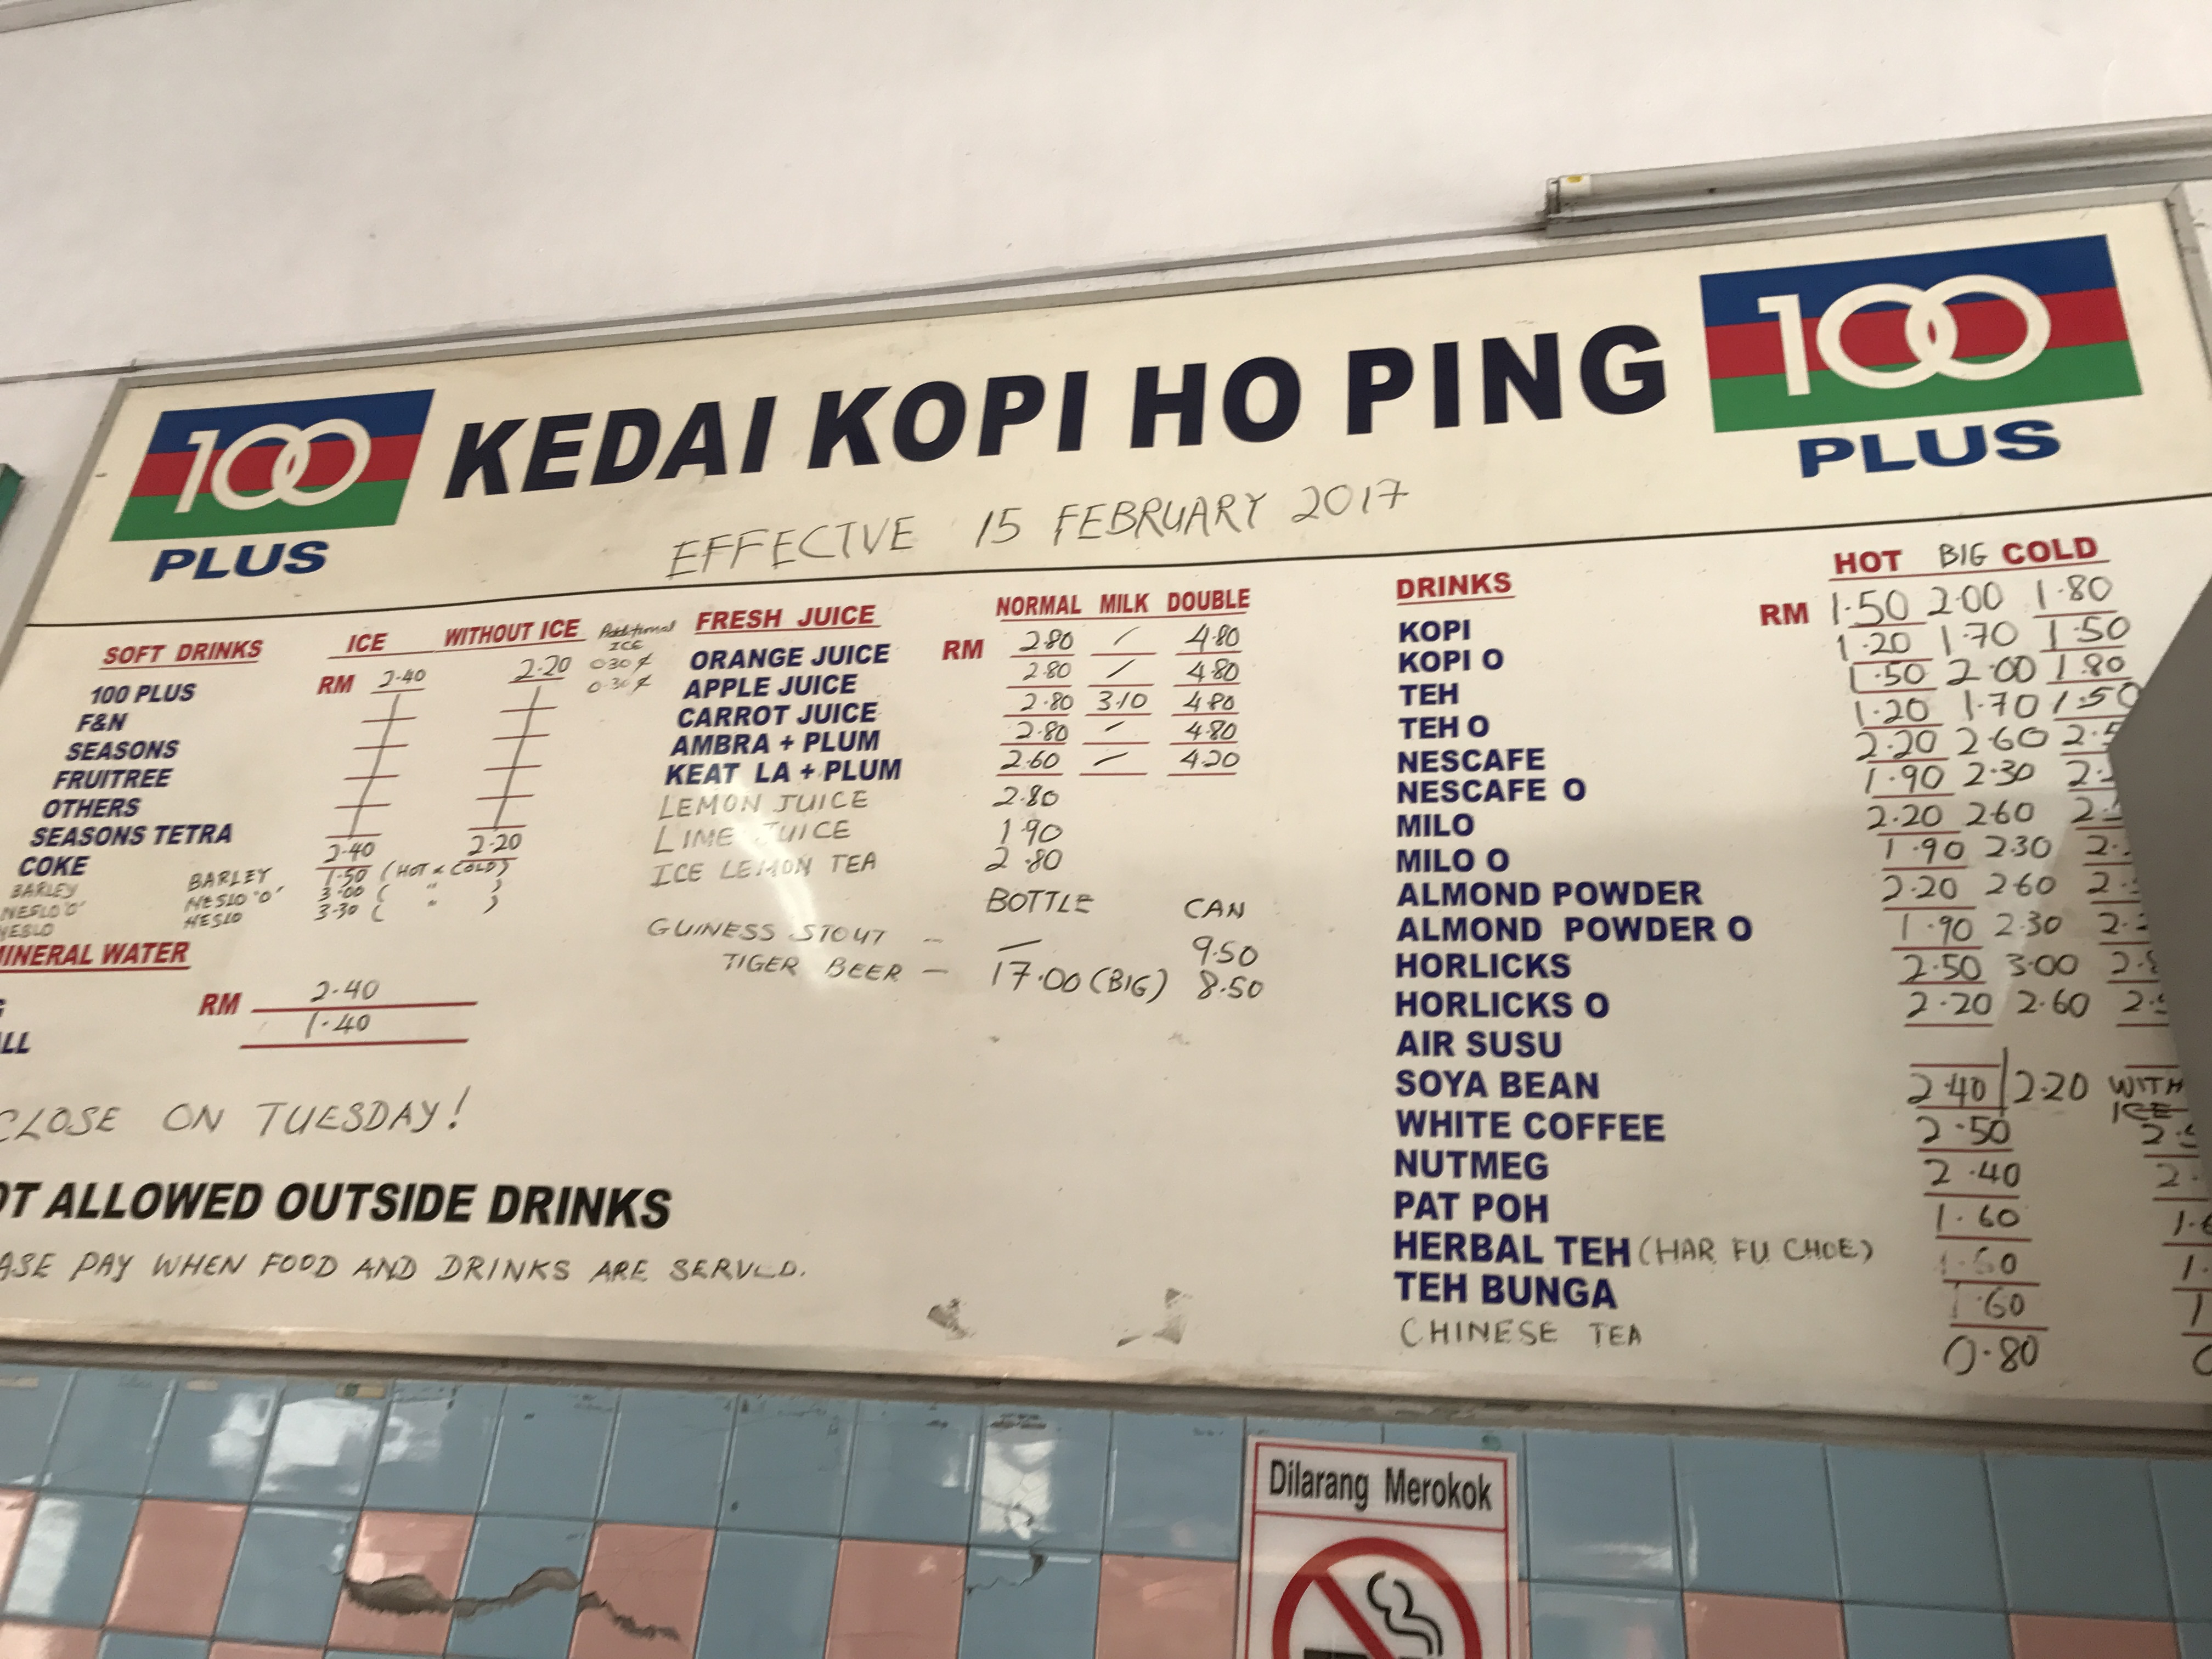 100 PLUS
KEDAI KOPI HO PING
100 PLUS
EFFECTVE 15 FEBRUARY 2017
SOFT DRINKS ICE WITHOUT ICE Additional ICE
100 PLUS RM 2.40 2.20 030¢
F&N 0.30¢
SEASONS
FRUITREE
OTHERS
SEASONS TETRA
COKE 2.40 2.20
BARLEY BARLEY 1.50 (HOT & COLD)
NESLO'O' NESLO 'O' 3.00 ( " )
NESLO NESLO 3.30 ( " )
MINERAL WATER
RM 2.40
1.40
CLOSE ON TUESDAY!
ALLOWED OUTSIDE DRINKS
PAY WHEN FOOD AND DRINKS ARE SERVED.
FRESH JUICE NORMAL MILK DOUBLE
ORANGE JUICE RM 2.80 / 4.80
APPLE JUICE 2.80 / 4.80
CARROT JUICE 2.80 3.10 4.80
AMBRA + PLUM 2.80 / 4.80
KEAT LA + PLUM 2.60 / 4.20
LEMON JUICE 2.80
LIME JUICE 1.90
ICE LEMON TEA 2.80
BOTTLE CAN
GUINESS STOUT - — 9.50
TIGER BEER - 17.00 (BIG) 8.50
DRINKS HOT BIG COLD
KOPI RM 1.50 2.00 1.80
KOPI O 1.20 1.70 1.50
TEH 1.50 2.00 1.80
TEH O 1.20 1.70 1.50
NESCAFE 2.20 2.60
NESCAFE O 1.90 2.30
MILO 2.20 2.60
MILO O 1.90 2.30
ALMOND POWDER 2.20 2.60
ALMOND POWDER O 1.90 2.30
HORLICKS 2.50 3.00
HORLICKS O 2.20 2.60
AIR SUSU
SOYA BEAN 2.40 2.20 WITH ICE
WHITE COFFEE 2.50
NUTMEG 2.40
PAT POH 1.60
HERBAL TEH (HAR FU CHOE) 1.60
TEH BUNGA 1.60
CHINESE TEA 0.80
Dilarang Merokok